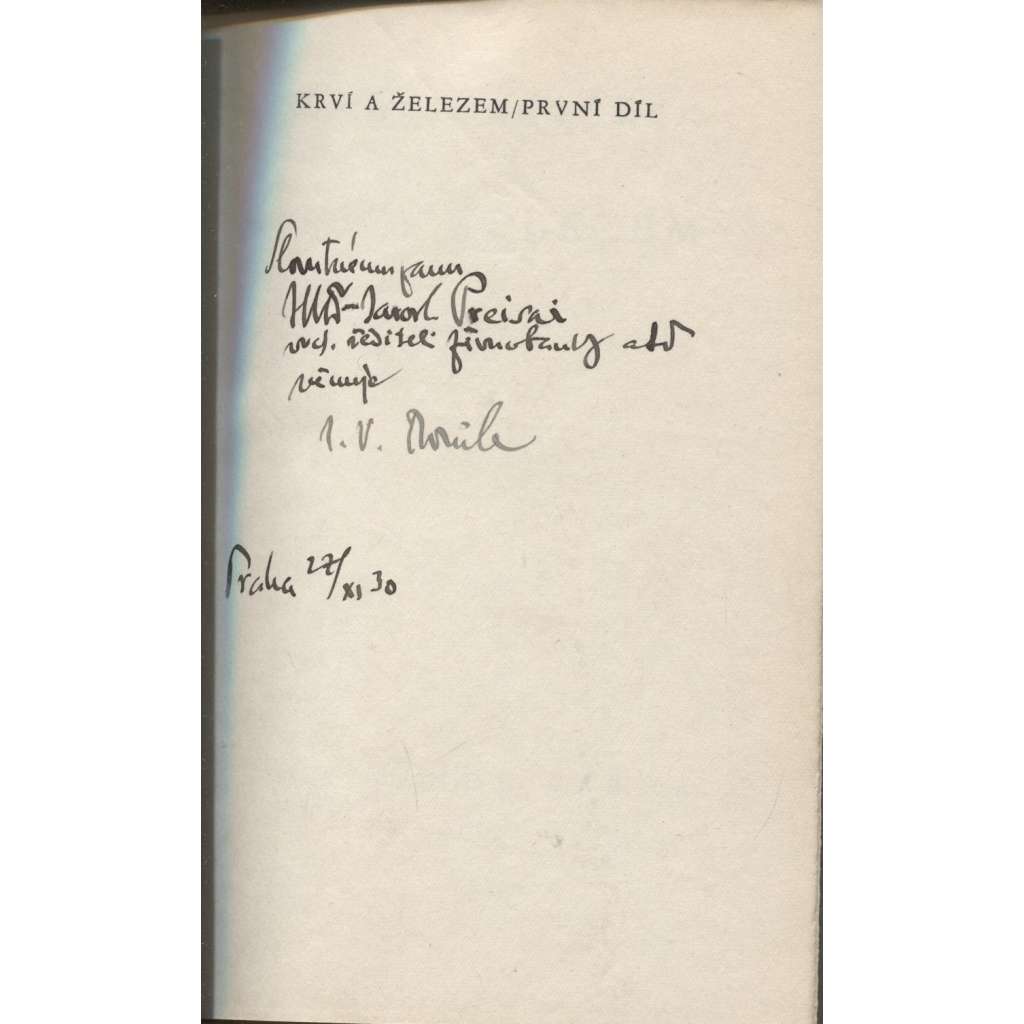 KRVÍ A ŽELEZEM/PRVNÍ DÍL
Slovutnému panu
JUDr Jarosl. Preisai
vrch. řediteli živnobanky atd
věnuje
Praha 27/XI 30